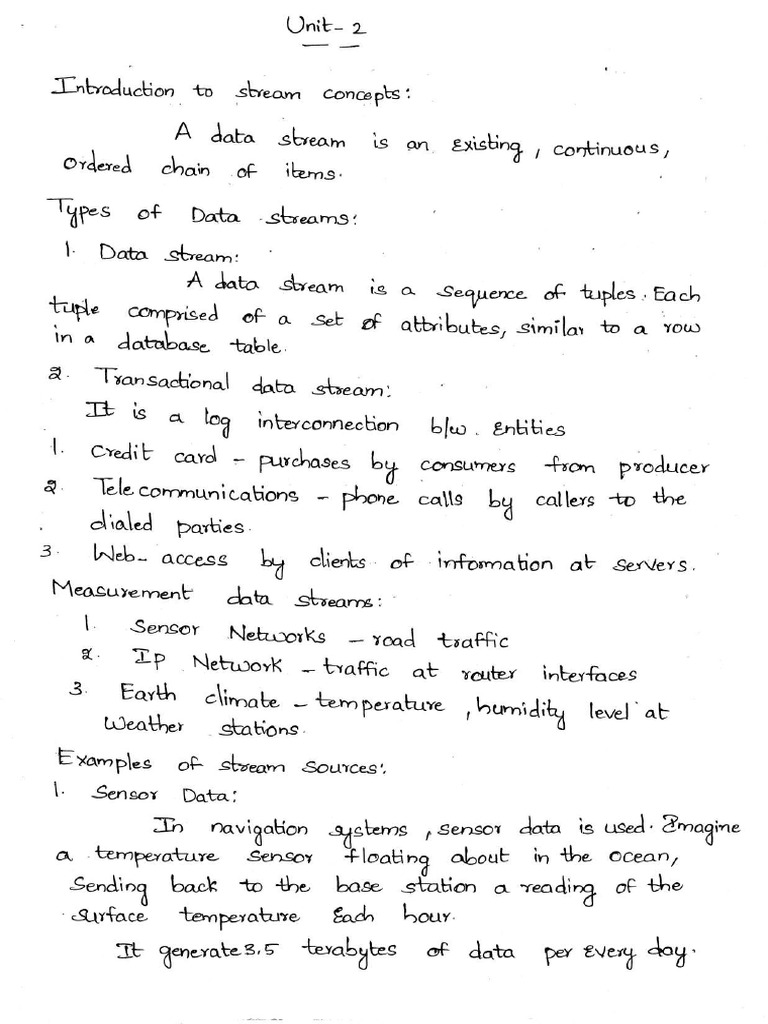 Unit-2
Introduction to stream concepts:
A data stream is an existing, continuous,
ordered chain of items.
Types of Data streams:
1. Data stream:
A data stream is a sequence of tuples. Each
tuple comprised of a set of attributes, similar to a row
in a database table.
2. Transactional data stream:
It is a log interconnection b/w. entities
1. Credit card - purchases by consumers from producer
2. Telecommunications - phone calls by callers to the
dialed parties.
3. Web- access by clients of information at servers.
Measurement data streams:
1. Sensor Networks - road traffic
2. Ip Network - traffic at router interfaces
3. Earth climate - temperature, humidity level at
Weather stations.
Examples of stream sources:
1. Sensor Data:
In navigation systems, sensor data is used. Imagine
a temperature sensor floating about in the ocean,
sending back to the base station a reading of the
surface temperature each hour.
It generate 3.5 terabytes of data per every day.